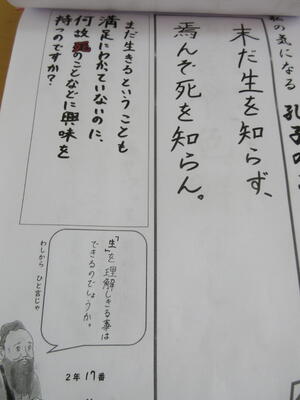 の気になる 孔子の
未だ生を知らず、
焉んぞ死を知らん。
まだ生きるということも
満足にわかていないのに、
何故死のことなどに興味を
持つのですか？
「生」を理解しきる事は
できるのでしょうか。
わしから ひと言じゃ
2年 17番